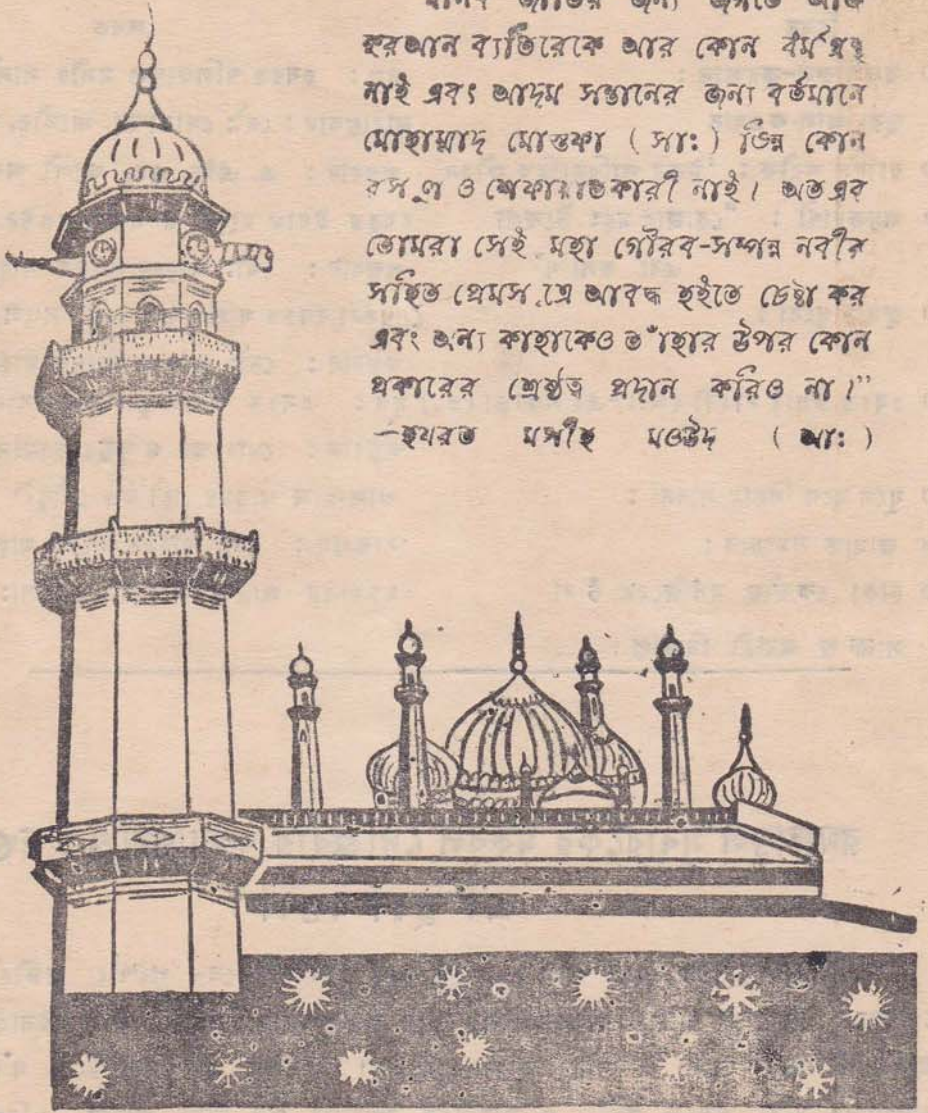 মানব জাতির জন্য জগতে আজ
কুরআন ব্যতিরেকে আর কোন ধর্মগ্রন্থ
নাই এবং আদম সন্তানের জন্য বর্তমানে
মোহাম্মাদ মোস্তফা ( সাঃ ) ভিন্ন কোন
রসূল ও শেফায়াতকারী নাই। অতএব
তোমরা সেই মহা গৌরব-সম্পন্ন নবীর
সহিত প্রেমসূত্রে আবদ্ধ হইতে চেষ্টা কর
এবং অন্য কাহাকেও তাঁহার উপর কোন
প্রকারের শ্রেষ্ঠত্ব প্রদান করিও না।”
—হযরত মসীহ মওউদ ( আঃ )